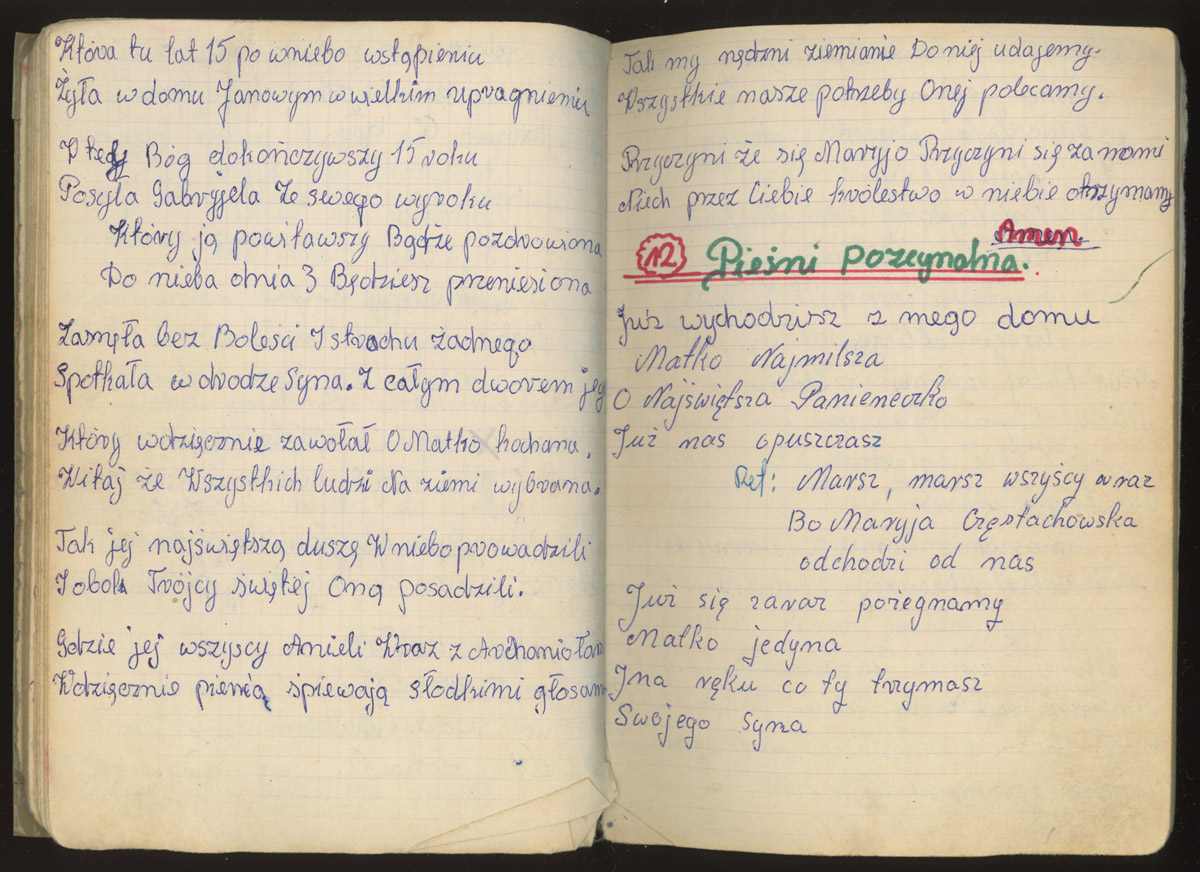 Która tu lat 15 po wniebo wstąpieniu
Żyła w domu Janowym w wielkim upragnieniu
Wtedy Bóg dokończywszy 15 roku
Posyła Gabryjela Ze swego wyroku
Który ją powitawszy Bądźże pozdrowiona
Do nieba dnia 3 Będziesz przeniesiona
Zasnęła bez Boleści I strachu żadnego
Spotkała w drodze Syna. Z całym dworem jeg
Który wdzięcznie zawołał O Matko kochana.
Witaj że Wszystkich ludzi Na ziemi wybrana.
Tak jej najświętszą duszę W niebo prowadzili
I obok Trójcy świętej Oną posadzili.
Gdzie jej wszyscy Anieli Wraz z Archaniołam
Wdzięcznie pienia śpiewają słodkimi głosam
Tak my nędzni ziemianie Do niej udajemy.
Wszystkie nasze potrzeby Onej polecamy.
Przyczyni że się Maryjo Przyczyni się za nami
Niech przez Ciebie królestwo w niebie otrzymamy
Amen.
12 Pieśni pozegnalna.
Już wychodzisz z mego domu
Matko Najmilsza
O Najświętsza Panieneczko
Już nas opuszczasz
Ref: Marsz, marsz wszyścy wraz
Bo Maryja Częstachowska
odchodzi od nas
Już się zaraz pożegnamy
Matko jedyna
I na ręku co ty trzymasz
Swojego Syna